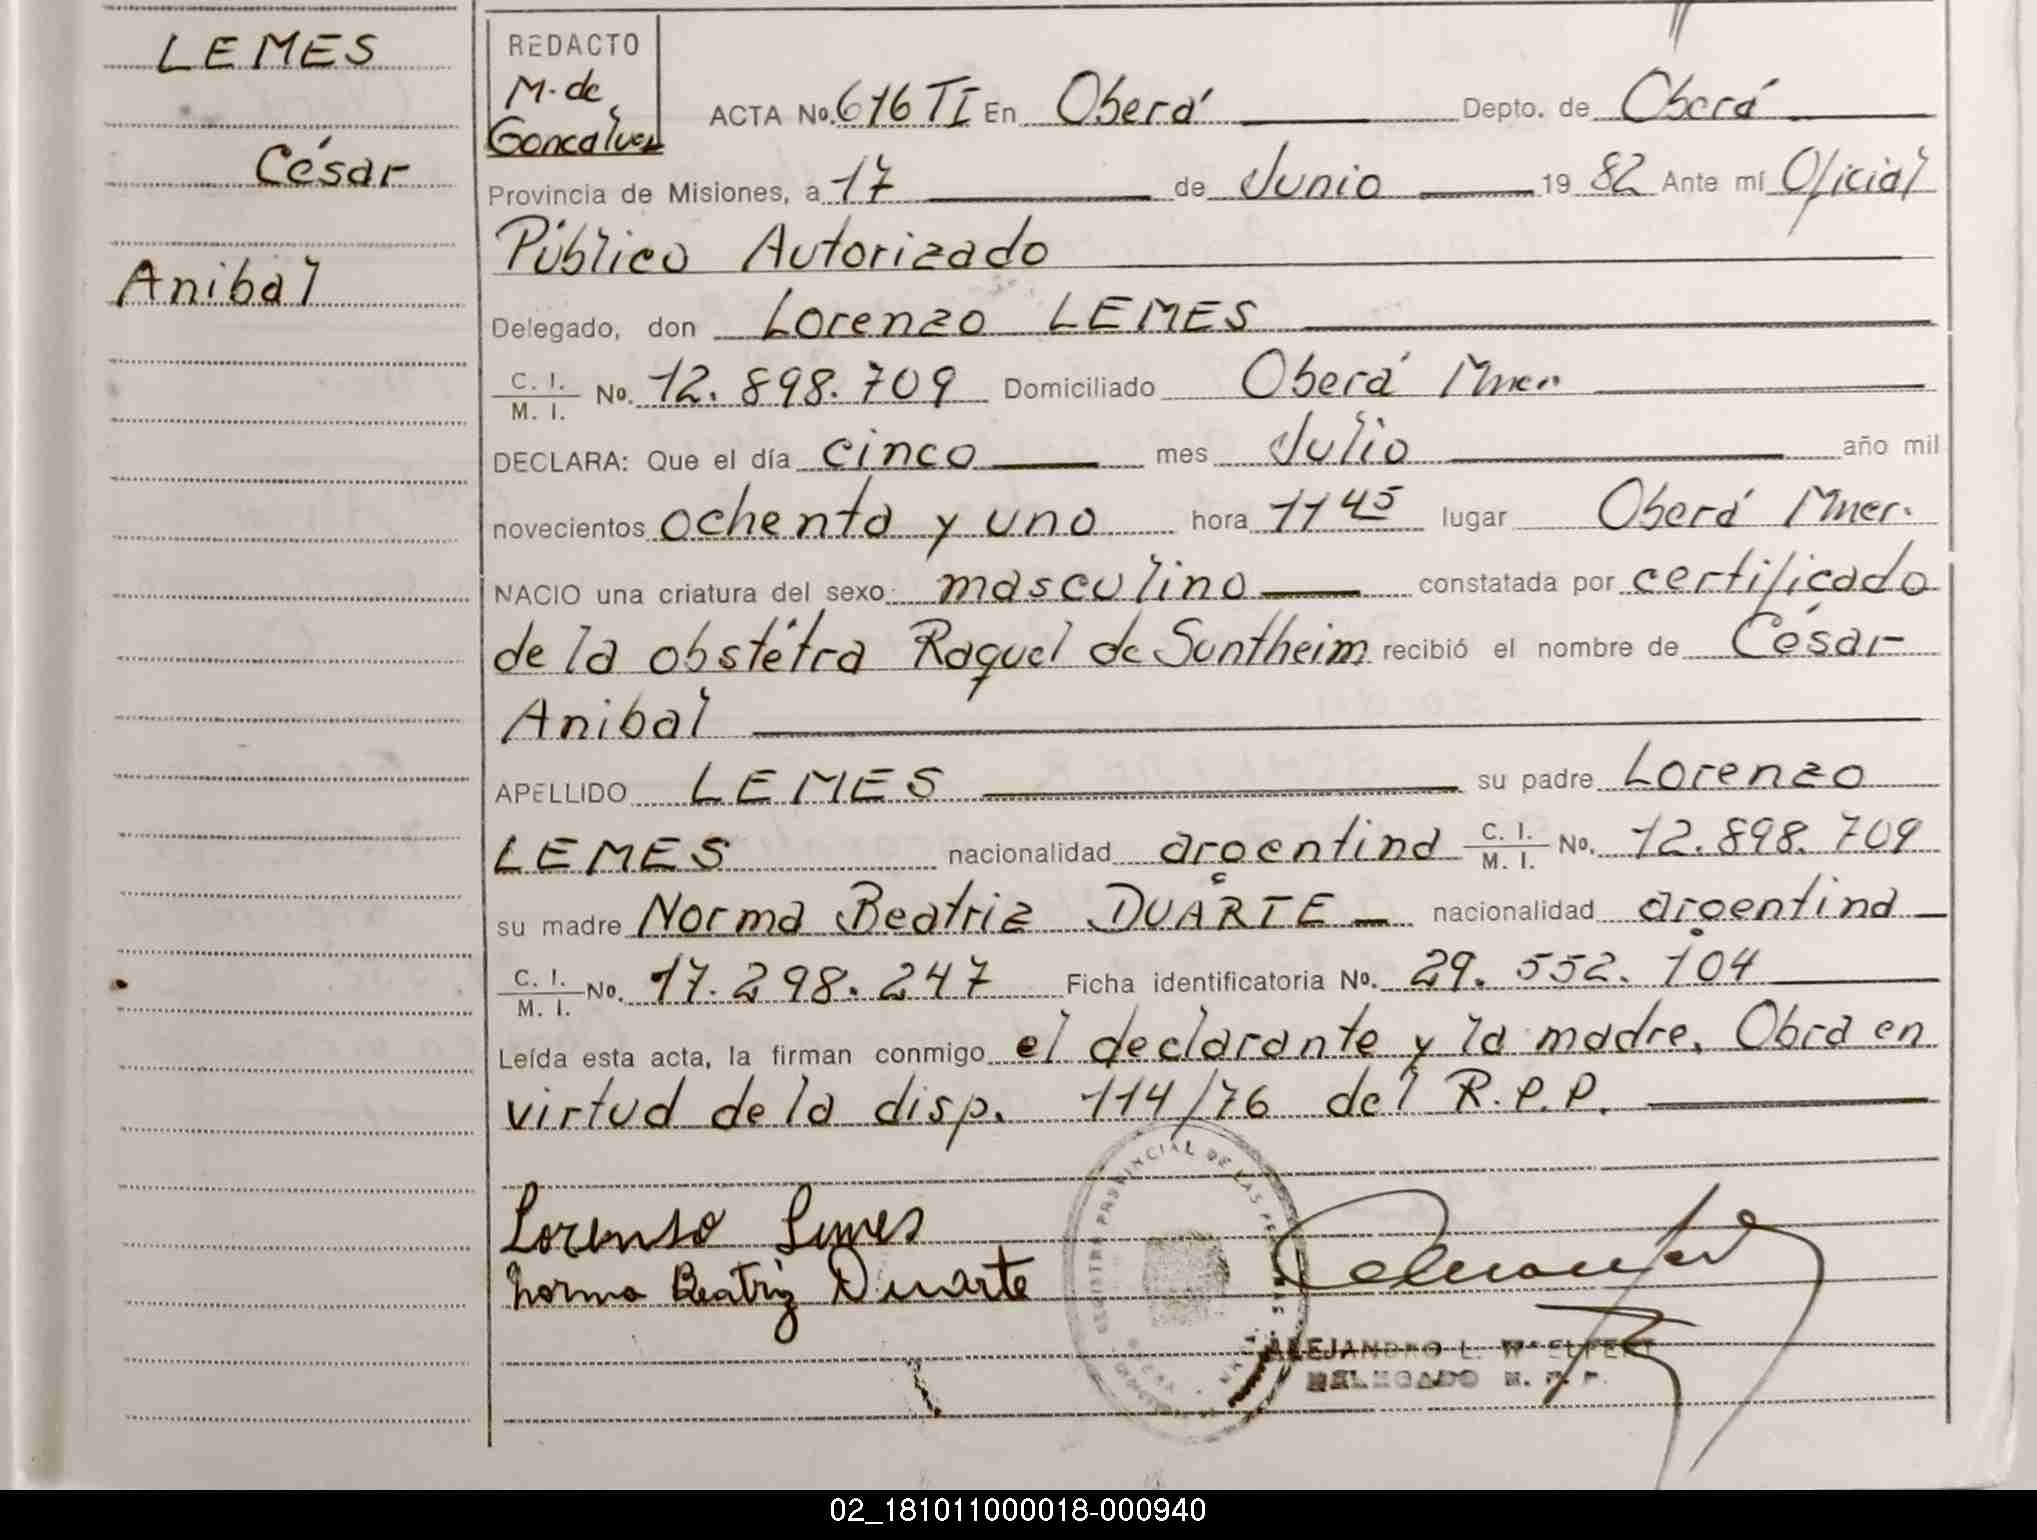 LEMES
César
Anibal
REDACTO
M. de
Goncalvez
ACTA No. 616 TI En Oberá Depto. de Oberá
Provincia de Misiones, a 17 de Junio 19 82 Ante mí Oficial
Público Autorizado
Delegado, don Lorenzo LEMES
C. I. / M. I. No. 12.898.709 Domiciliado Oberá Mnes.
DECLARA: Que el día cinco mes Julio año mil
novecientos ochenta y uno hora 11 45 lugar Oberá Mnes.
NACIO una criatura del sexo: masculino constatada por certificado
de la obstétra Raquel de Suntheim recibió el nombre de César
Anibal
APELLIDO LEMES su padre Lorenzo
LEMES nacionalidad argentina C. I. / M. I. No. 12.898.709
su madre Norma Beatriz DUARTE nacionalidad argentina
C. I. / M. I. No. 17.298.247 Ficha identificatoria No. 29.552.104
Leída esta acta, la firman conmigo el declarante y la madre. Obra en
virtud de la disp. 114/76 del R.P.P.
Lorenso Lemes
Norma Beatriz Duarte
REGISTRO PROVINCIAL DE LAS PERSONAS
ALEJANDRO L.
DELEGADO R. P. P.
02_181011000018-000940